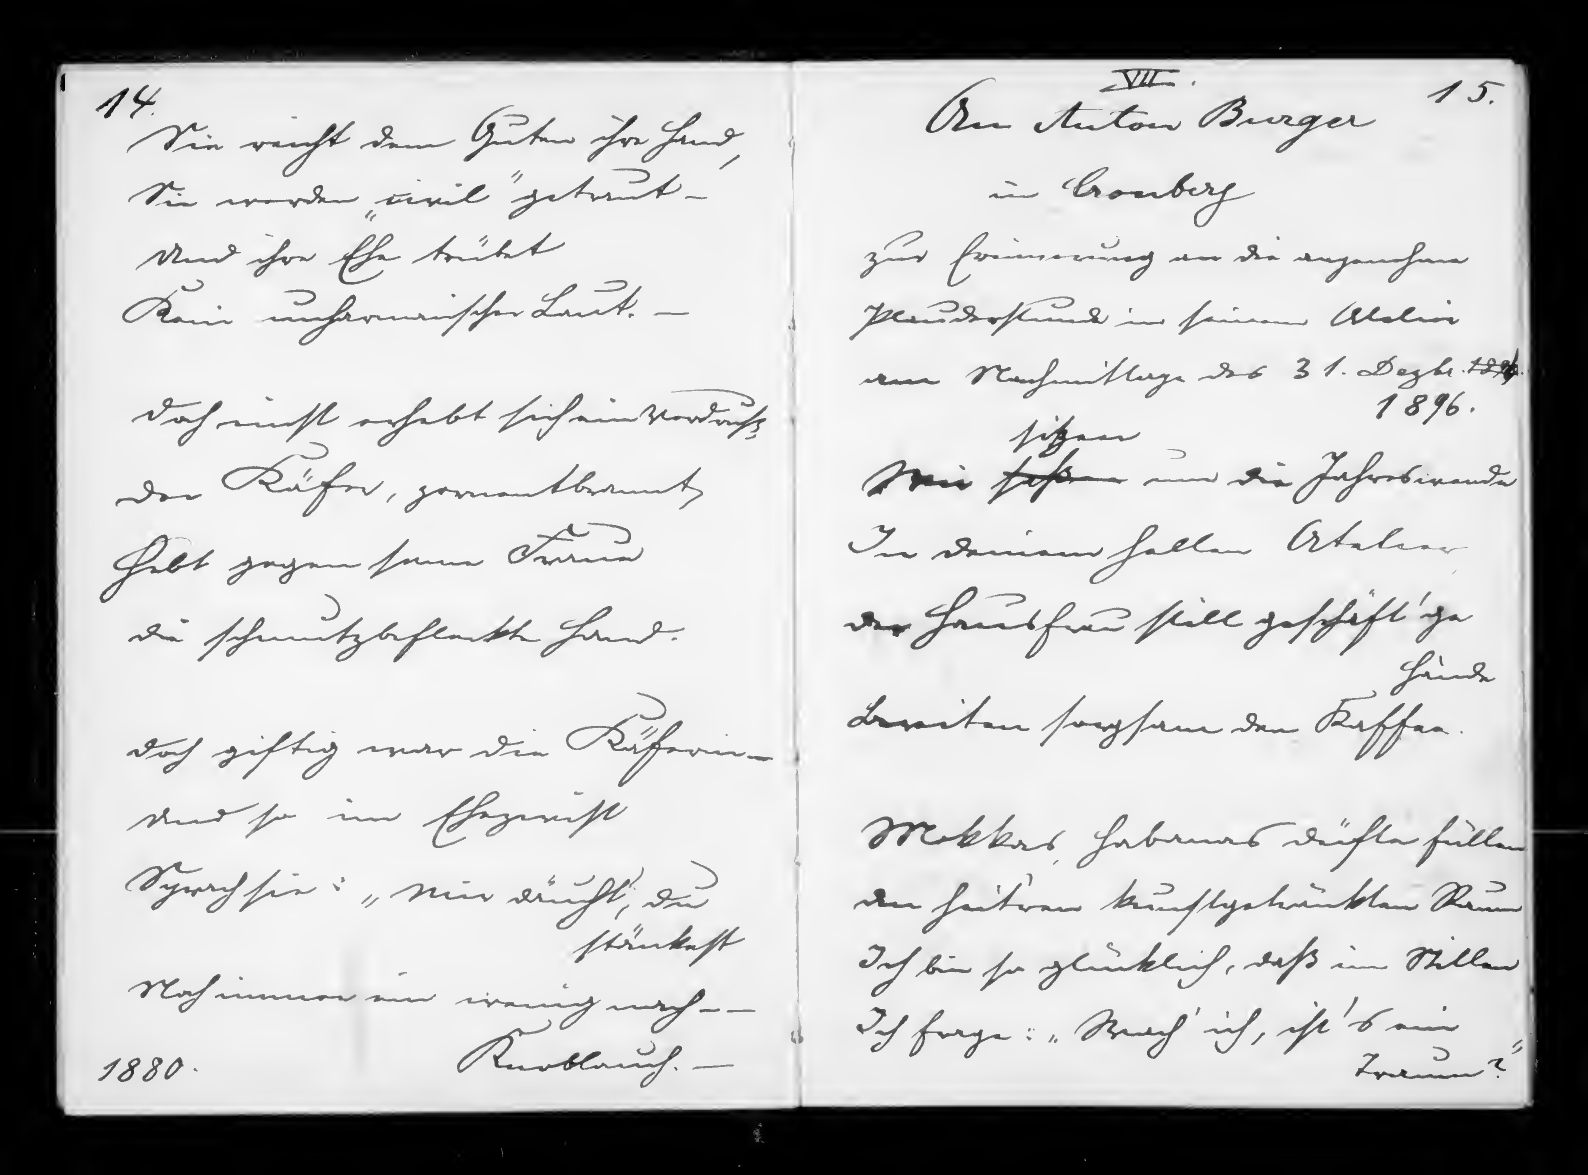 14.
Sie reicht dem Guten ihre Hand,
Sie werden „civil" getraut –
Und ihre Ehe trübet
Kein unharmonischer Laut. –
Doch einst erhebt sich ein Verdruß,
Der Käfer, zornentbrannt,
Hebt gegen seine Fraue
die schmutzbefleckte Hand.
Doch giftig war die Käferin –
Und so im Ehezwist
Sprach sie: „Mir däucht', du
stänkest
Noch immer ein wenig nach – –
Knoblauch. –
1880.
VII.
15.
An Anton Burger
in Cronberg
zur Erinnerung an die angenehme
Plauderstunde in seinem Atelier
am Nachmittage des 31. Dezbr. 1896.
1896.
sitzen
Wir saßen um die Jahreswende
In deinem hellen Atelier
der Hausfrau still geschäft'ge
Hände
Bereiten sorgsam den Kaffee.
Mokkas, Habanas düfte füllen
den heit'ren kunstgetränkten Raum
Ich bin so glücklich, daß im Stillen
Ich frage: „Wach' ich, ist's ein
Traum?"